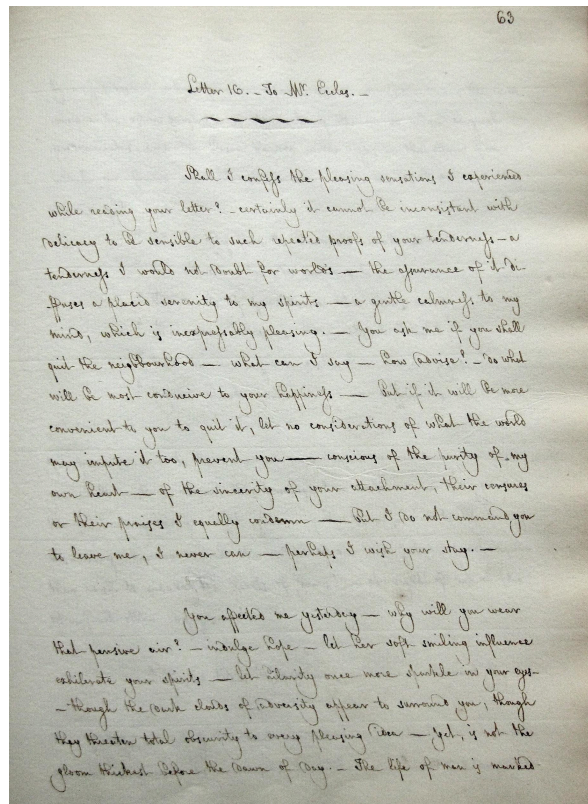 63
Letter 16. - To Mr. Eccles. -
Shall I confess the pleasing sensations I experienced
while reading your letter? - certainly it cannot be inconsistant with
delicacy to be sensible to such repeated proofs of your tenderness - a
tenderness I would not doubt for worlds — the assurance of it di-
ffuses a placid serenity to my spirits — a gentle calmness to my
mind, which is inexpressably pleasing. — You ask me if you shall
quit the neighbourhood — what can I say — how advise? - do what
will be most conducive to your happiness — But if it will be more
convenient to you to quit it, let no considerations of what the world
may impute it too, prevent you — conscious of the purity of my
own heart — of the sincerity of your attachment, their censures
or their praises I equally condemn — But I do not command you
to leave me, I never can — perhaps I wish your stay. —
You affected me yesterday — why will you wear
that pensive air? - indulge hope - let her soft smiling influence
exhilerate your spirits — let alarity once more sparkle in your eyes-
- though the dark clouds of adversity appear to surround you, though
they threaten total obscurity to every pleasing idea — yet, is not the
gloom thickest before the dawn of day. - The life of man is marked